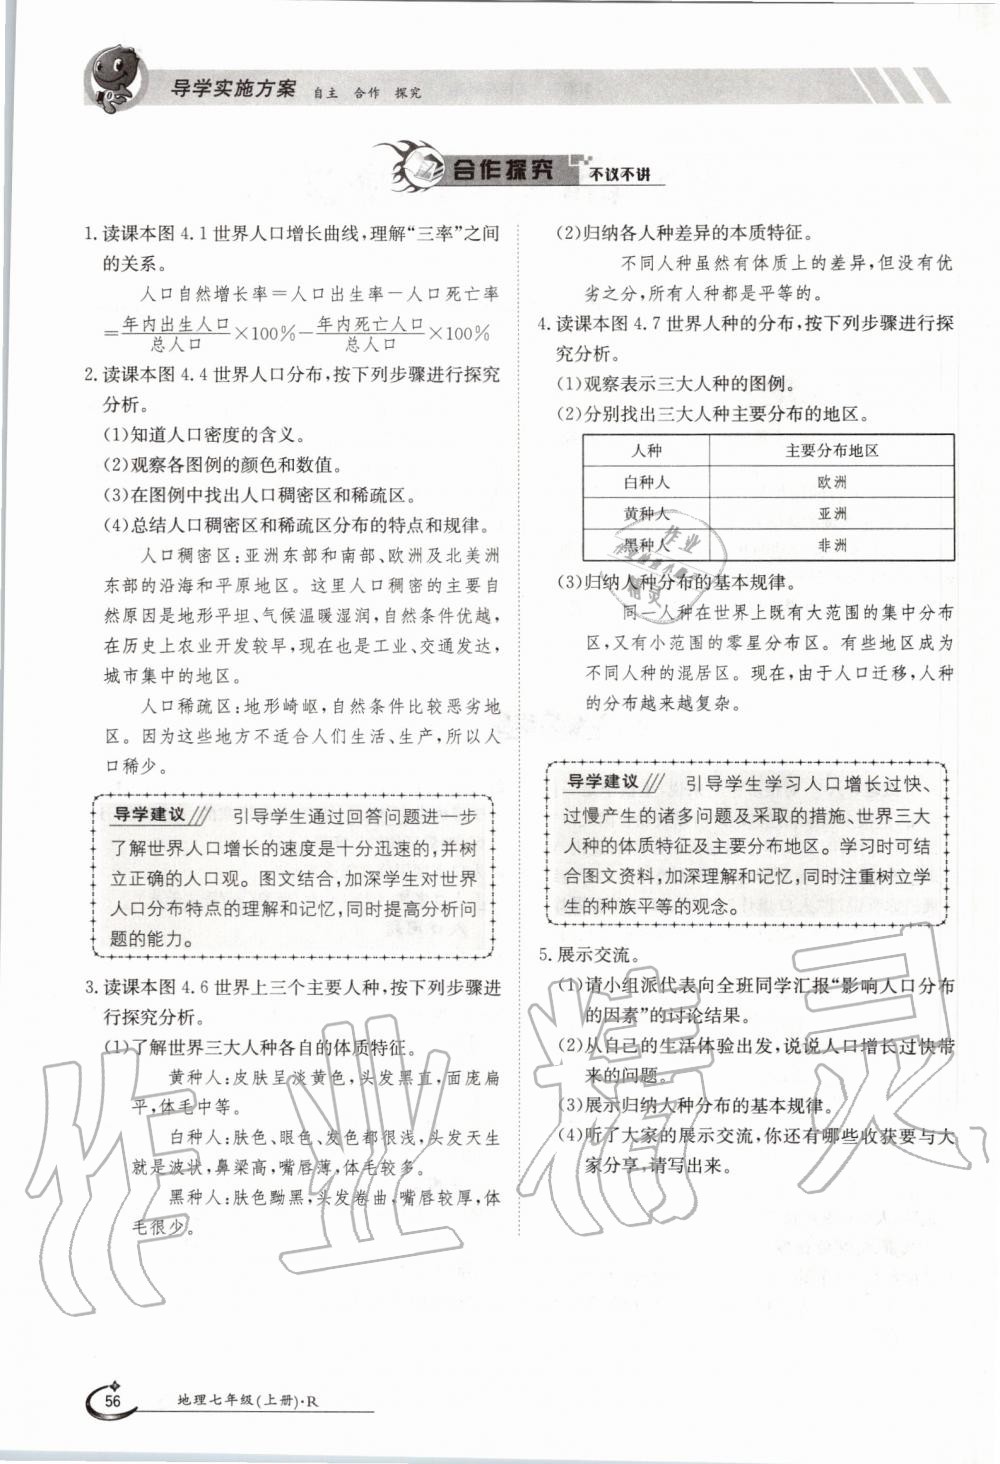 导学实施方案 自主 合作 探究
合作探究 不议不讲
1. 读课本图 4.1 世界人口增长曲线,理解“三率”之间
的关系。
人口自然增长率＝人口出生率－人口死亡率
＝年内出生人口/总人口×100%－年内死亡人口/总人口×100%
2. 读课本图 4.4 世界人口分布,按下列步骤进行探究
分析。
(1)知道人口密度的含义。
(2)观察各图例的颜色和数值。
(3)在图例中找出人口稠密区和稀疏区。
(4)总结人口稠密区和稀疏区分布的特点和规律。
人口稠密区:亚洲东部和南部、欧洲及北美洲
东部的沿海和平原地区。这里人口稠密的主要自
然原因是地形平坦、气候温暖湿润,自然条件优越,
在历史上农业开发较早,现在也是工业、交通发达,
城市集中的地区。
人口稀疏区:地形崎岖,自然条件比较恶劣地
区。因为这些地方不适合人们生活、生产,所以人
口稀少。
导学建议 引导学生通过回答问题进一步
了解世界人口增长的速度是十分迅速的,并树
立正确的人口观。图文结合,加深学生对世界
人口分布特点的理解和记忆,同时提高分析问
题的能力。
3. 读课本图 4.6 世界上三个主要人种,按下列步骤进
行探究分析。
(1)了解世界三大人种各自的体质特征。
黄种人:皮肤呈淡黄色,头发黑直,面庞扁
平,体毛中等。
白种人:肤色、眼色、发色都很浅,头发天生
就是波状,鼻梁高,嘴唇薄,体毛较多。
黑种人:肤色黝黑,头发卷曲,嘴唇较厚,体
毛很少。
(2)归纳各人种差异的本质特征。
不同人种虽然有体质上的差异,但没有优
劣之分,所有人种都是平等的。
4. 读课本图 4.7 世界人种的分布,按下列步骤进行探
究分析。
(1)观察表示三大人种的图例。
(2)分别找出三大人种主要分布的地区。
人种 主要分布地区
白种人 欧洲
黄种人 亚洲
黑种人 非洲
(3)归纳人种分布的基本规律。
同一人种在世界上既有大范围的集中分布
区,又有小范围的零星分布区。有些地区成为
不同人种的混居区。现在,由于人口迁移,人种
的分布越来越复杂。
导学建议 引导学生学习人口增长过快、
过慢产生的诸多问题及采取的措施、世界三大
人种的体质特征及主要分布地区。学习时可结
合图文资料,加深理解和记忆,同时注重树立学
生的种族平等的观念。
5. 展示交流。
(1)请小组派代表向全班同学汇报“影响人口分布
的因素”的讨论结果。
(2)从自己的生活体验出发,说说人口增长过快带
来的问题。
(3)展示归纳人种分布的基本规律。
(4)听了大家的展示交流,你还有哪些收获要与大
家分享,请写出来。
作业精灵
56 地理七年级(上册)·R